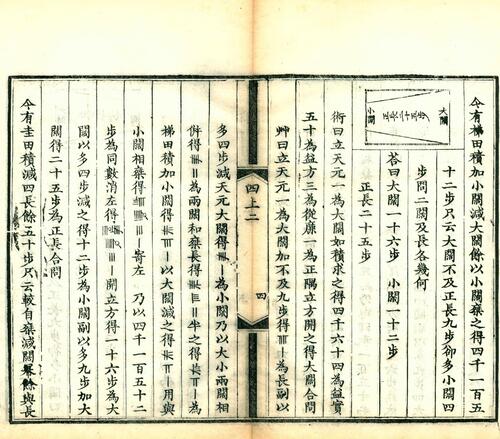 今有梯田積加小闊減大闊餘以小闊乘之得四千一百五
十二步只云大闊不及正長九步卻多小闊四
步問二闊及長各幾何
荅曰大闊一十六步 小闊一十二步
正長二十五步
大闊
正長二十五步
小闊
術曰立天元一為大闊如積求之得四千六十四為益實
五十為益方三為從廉一為正隅立方開之得大闊合問
艸曰立天元一為大闊加不及九步得為長副以
四上二
四
多四步減天元大闊得為小闊乃以大小兩闊相
併得為兩闊和乘長得半之得為
梯田積加小闊得以大闊減之得用與
小闊相乘得寄左 乃以四千一百五十二
步為同數消左得開立方得一十六步為大
闊以多四步減之得十二步為小闊副以多九步加大
闊得二十五步為正長合問
今有圭田積減四長餘五十步只云較自乘減闊羃餘與長